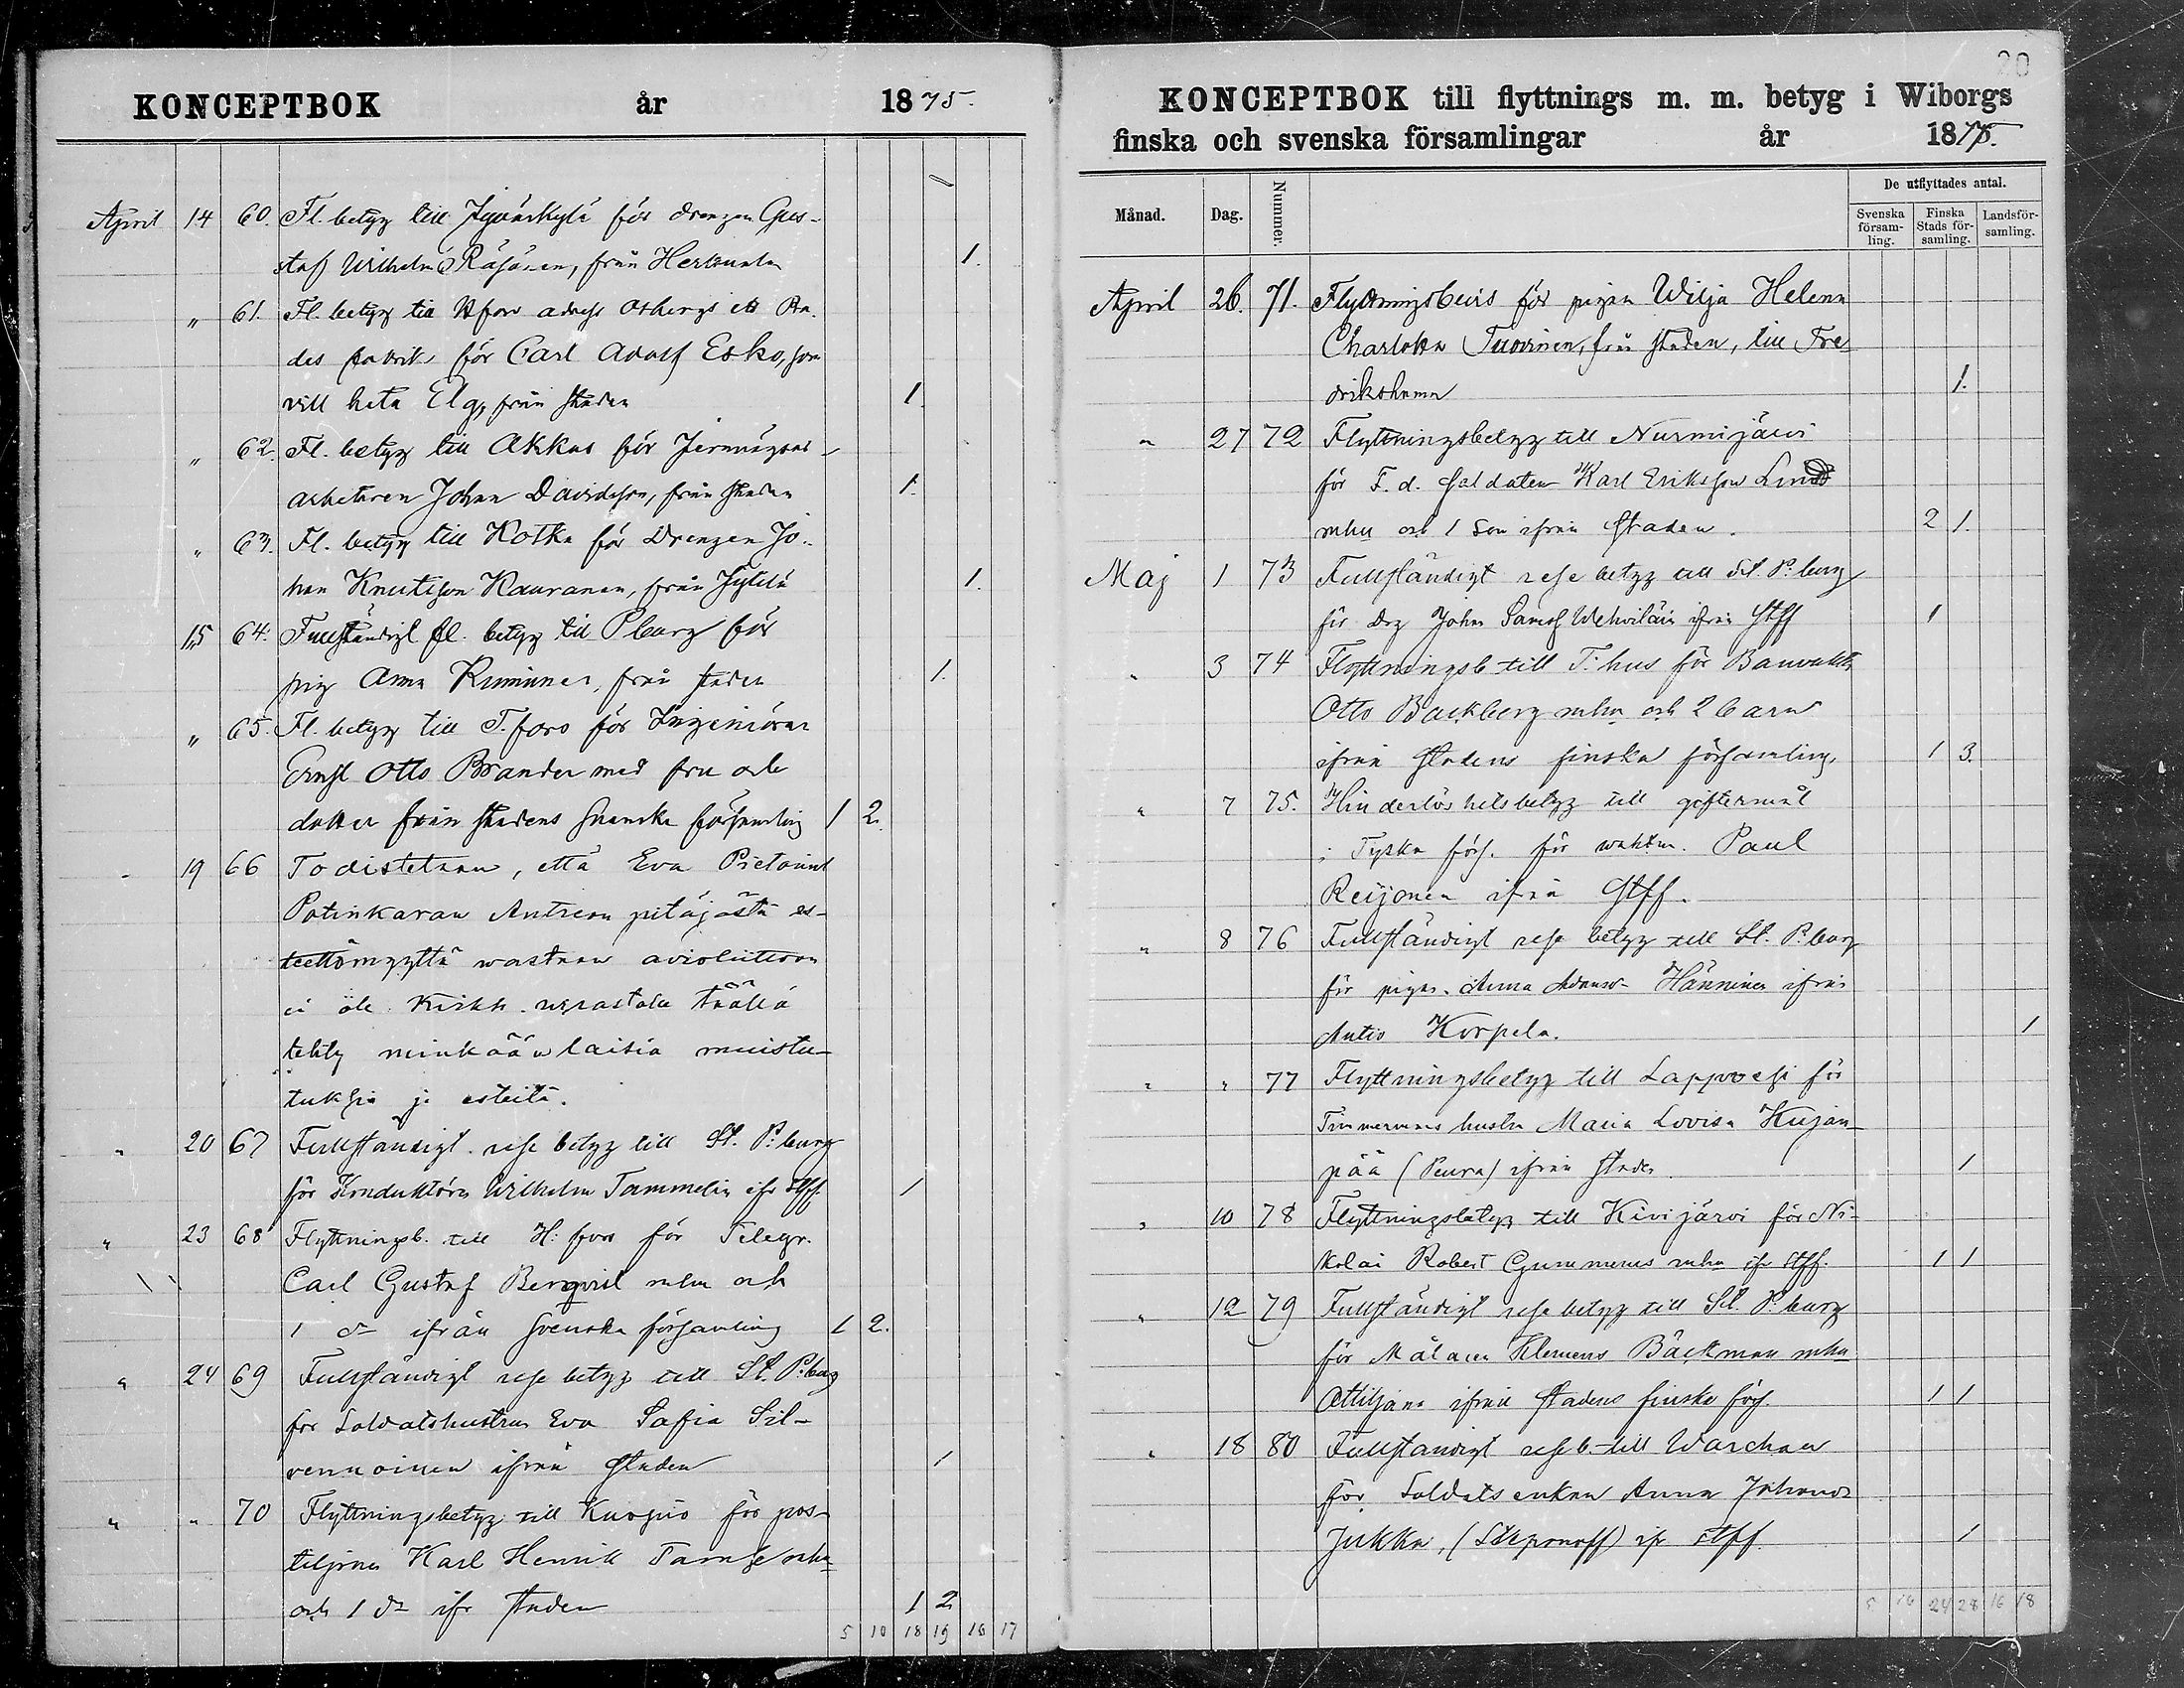 KONCEPTBOK år 1875.
April 14 60. Fl. betyg till Jyväskylä för drengen Gus-
staf Wilhelm Räsänen, från Herttuala 1.
" 61. Fl. betyg till Hfors
des fabrik för Carl Adolf Esko, som
vill heta Elg, från staden 1.
" 62. Fl. betyg till Akkas för Jernvägs-
arbetaren Johan Davidsson, från staden 1.
" 63. Fl. betyg till Kotka för Drengen Jo-
han Knutsson Kauranen, från 1.
15 64. Fullständigt fl. betyg till Pburg för
pig Anna Kiminen, från staden 1.
" 65. Fl. betyg till T.fors för Ingeniören
Ernst Otto Brander med fru och
dotter från stadens svenska församling 1 2.
" 19 66 Todistetaan, että Eva Pietarint
Potinkaran Antrean pitäjästä es-
teettömyyttä wastaan avioliittoon
ei ole kirkk. wirastolla täällä
tehty minkäänlaisia muistu-
tuksia ja esteitä.
" 20 67 Fullständigt rese betyg till St. P:burg
för Konduktören Wilhelm Tammelin ifr Stff. 1
" 23 68 Flyttningsb. till H:fors för Telegr.
Carl Gustaf Berqvist mhu och
1 dr ifrån svenska församling 1 2.
" 24 69 Fullständigt rese betyg till St. P:burg
för Soldatshustrun Eva Sofia Sil-
vennoinen ifrån staden 1
" " 70 Flyttningsbetyg till Kuopio för pos-
tiljonen Karl Henrik mhu
och 1 dr ifr staden 1 2
5 10 18 19 16 17
20
KONCEPTBOK till flyttnings m. m. betyg i Wiborgs
finska och svenska församlingar år 1875.
Månad. Dag. Nummer. De utflyttades antal.
Svenska försam-ling. Finska Stads för-samling. Landsför-samling.
April 26. 71. Flyttningsbevis för pigan Wilja Helena
Charlotta Tuovinen, från staden, till Fre-
drikshamn 1.
" 27 72 Flyttningsbetyg till Nurmijärvi
för F. d. Soldaten Karl Eriksson Lind
mhu och 1 son ifrån staden. 2 1.
Maj 1 73 Fullständigt rese betyg till St. P:burg
för drg Johan Samuel Wehviläin ifrån Stff 1
" 3 74 Flyttningsb till T:hus för Banvakten
Otto Backberg mhu och 2 barn
ifrån stadens finska församling. 1 3.
" 7 75. Hinderlöshetsbetyg till giftermål
i Tyska förs. för waktm. Paul
Reijonen ifrån Stff.
" 8 76 Fullständigt rese betyg till St. P:burg
för pigan Anna Adamsdr Hänninen ifrån
Autio Korpela. 1
" " 77 Flyttningsbetyg till Lappvesi för
Timmermans hustru Maria Lovisa Kujan-
pää (Peura) ifrån staden. 1
" 10 78 Flyttningsbetyg till Kivijärvi för Ni-
kolai Robert Gummerus mhu ifr Stff. 1 1
" 12 79 Fullständigt rese betyg till St. P:burg
för Målaren Klemens Bäckman mhu
Ottiljana ifrån stadens finska förs. 1 1
" 18 80 Fullständigt rese b. till Warschau
för Soldats enkan Anna Johansdr
Jukka, (Stepanoff) ifr Stff. 1
5 10 24 28 16 18